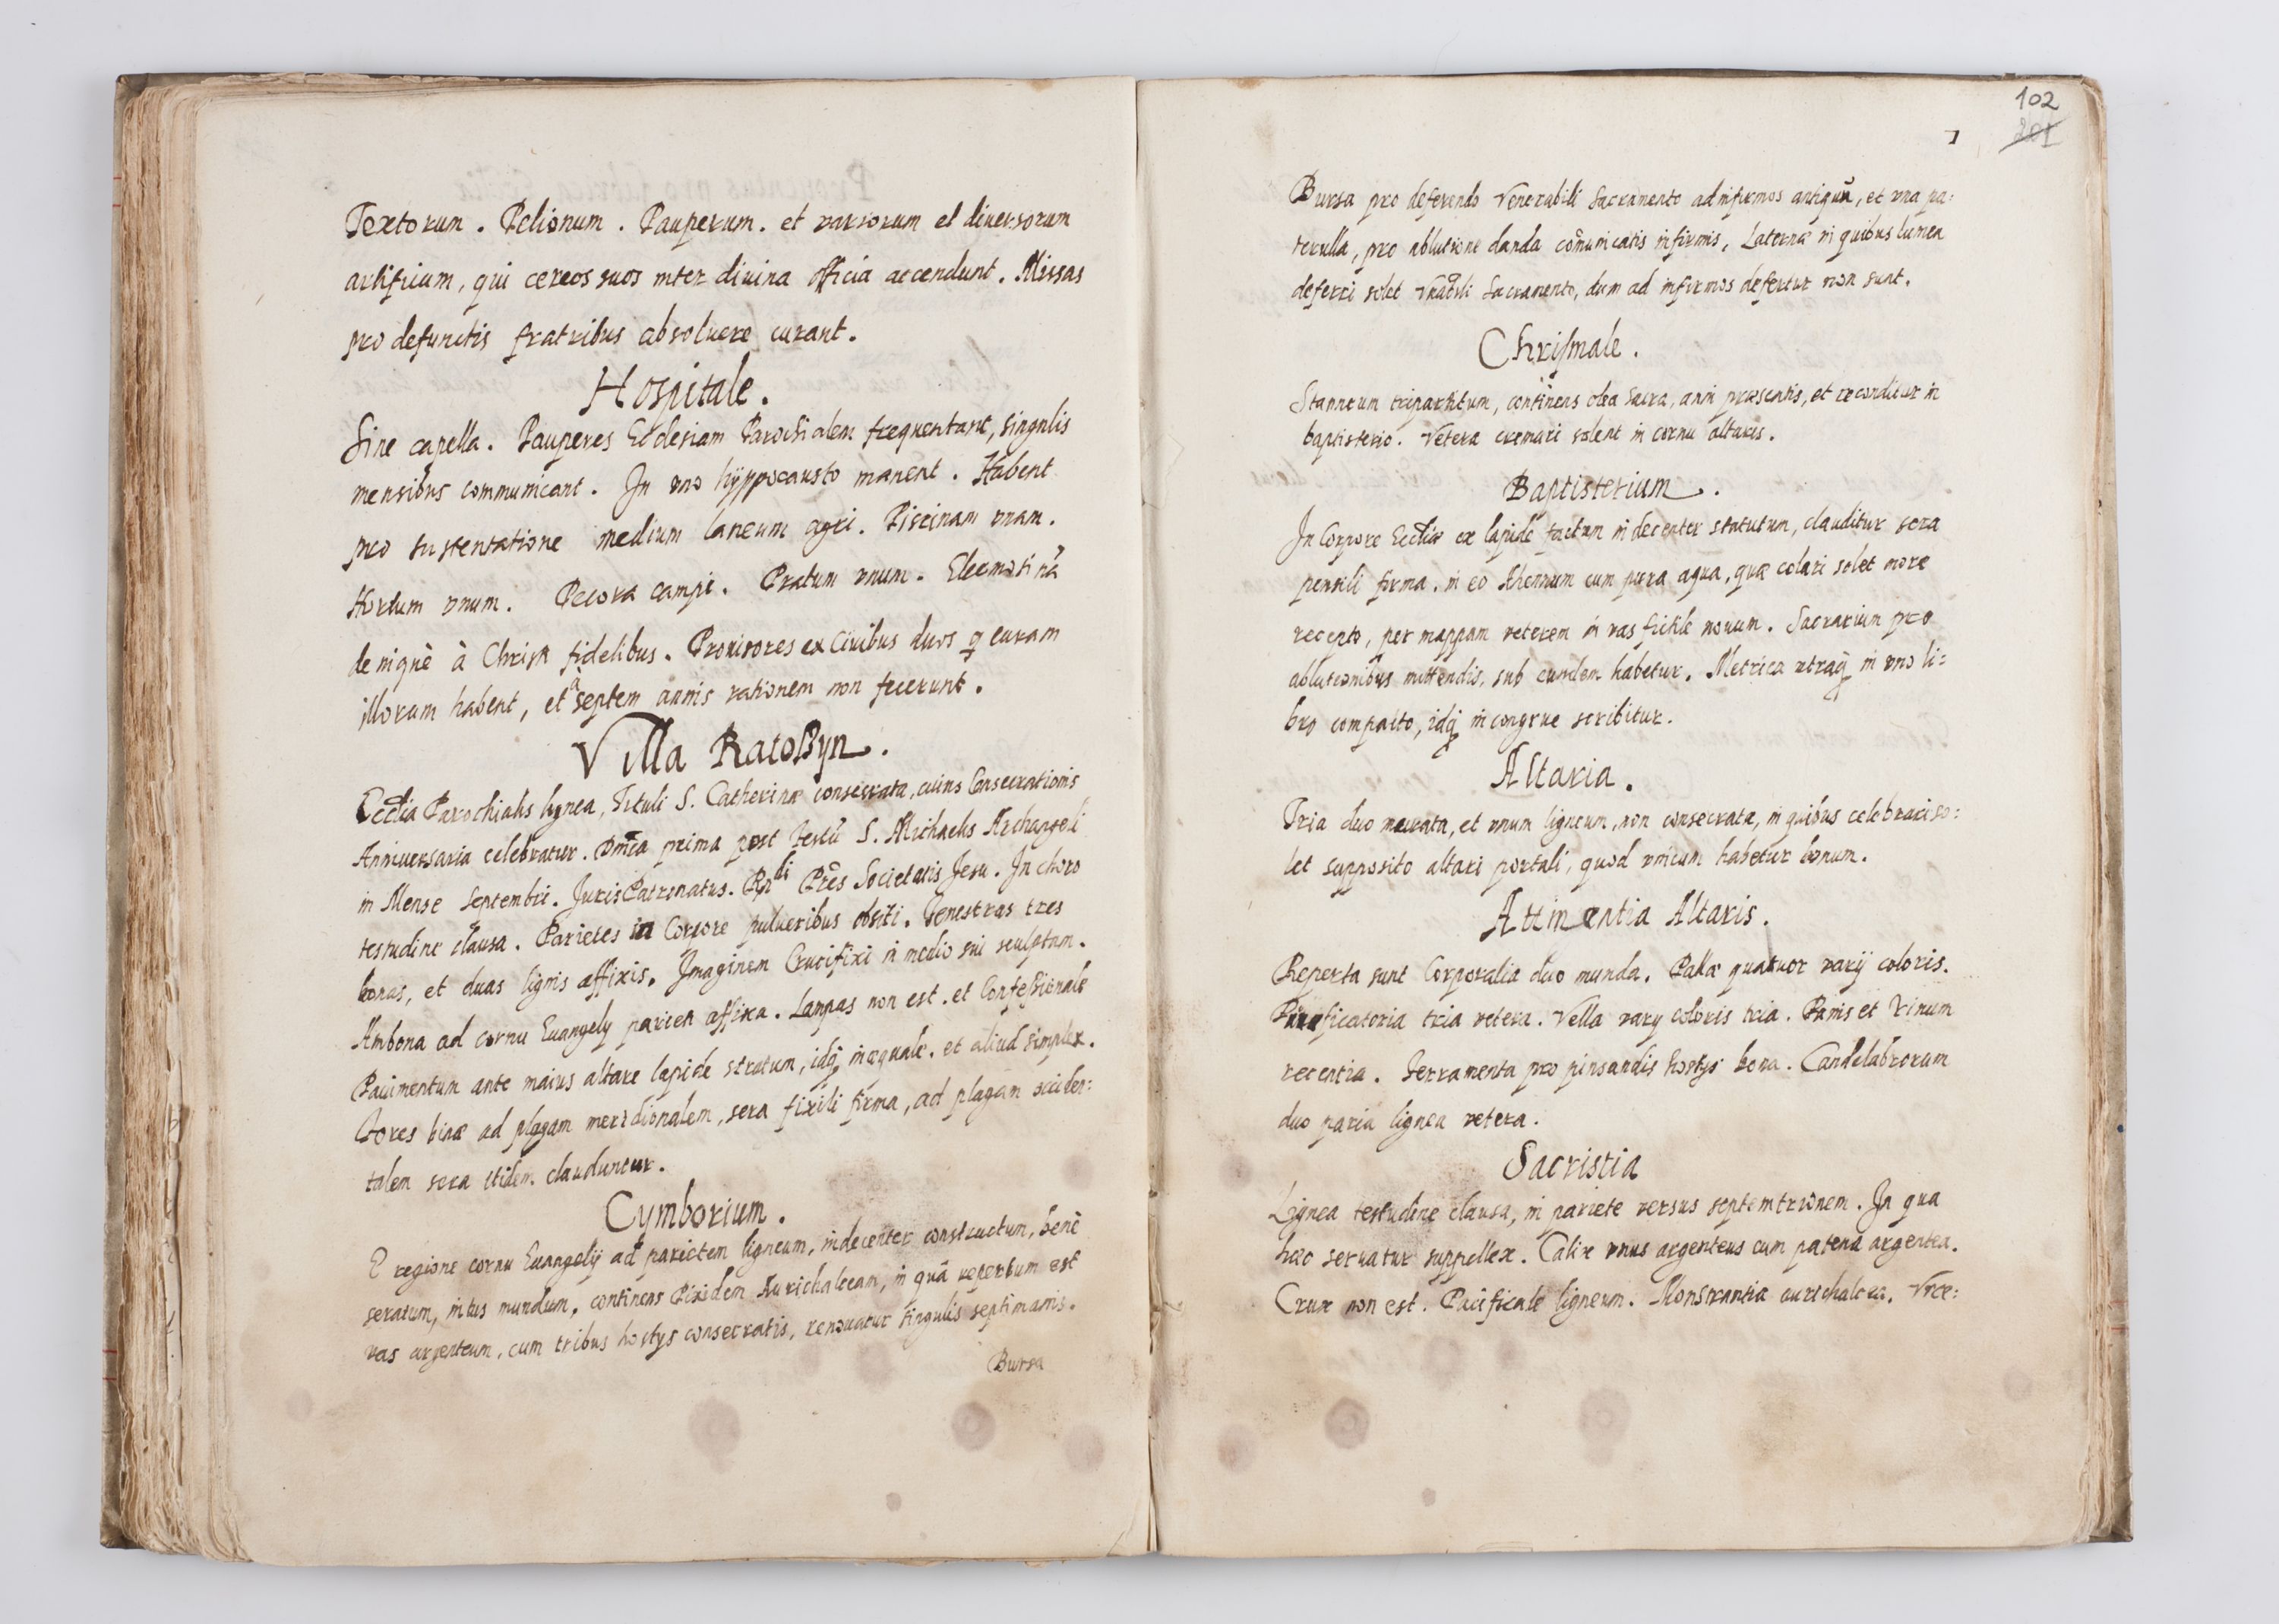 Textorum. Pelionum. Pauperum. et variorum et diuersorum
artificum, qui cereos suos inter diuina officia accendunt. Missas
pro defunctis fratribus absoluere curant.
Hospitale.
Sine capella. Pauperes Ecclesiam Parochialem frequentant, singulis
mensibus communicant. In vno hÿppocausto manent. Habent
pro sustentatione medium laneum agri. Piscinam vnam.
Hortum vnum. Pecora campi. Pratum vnum. Eleemosinã
deniquè à Christi fidelibus. Prouisores ex Ciuibus duos q curam
illorum habent, et à septem annis rationem non fecerunt.
Villa Ratoßyn.
Ecclia Parochialis lignea, Tituli S. Catherinæ consecrata, cuius Consecrationis
Anniuersaria celebratur. Dnica prima post Festũ S. Michaelis Archangeli
in Mense Septembri. Juris Patronatus. Rndi Pres Societatis Jesu. In choro
testudine clausa. Parietes in Corpore pulueribus obsiti. Fenestras tres
bonas, et duas lignis affixis. Imaginem Crucifixi in medio sui sculptam.
Ambona ad cornu Euangely parieti affixa. Lampas non est. et Confeßionale
Pauimentum ante maius altare lapide stratum, idq inæquale. et aliud simplex.
Fores binæ ad plagam meridionalem, sera fixili firma, ad plagam occiden:
talem sera itidem clauduntur.
Cymborium.
E regione cornu Euangelij ad parietem ligneum, indecenter constructum, benè
seratum, intus mundum, continens Pixidem Aurichalceam, in quâ repertum est
vas argenteum, cum tribus hostys consecratis, renouatur singulis septimanis.
Bursa
102
201
Bursa pro deferendo Venerabili Sacramento ad infirmos antiqua, et vna pa:
terulla, pro ablutione danda cõmunicatis infirmis, Laternæ in quibus lumen
deferri solet Vnãbili Sacramento, dum ad infirmos defertur non sunt.
Chrismale.
Stanneum tripartitum, continens olea sacra, anni præsentis, et reconditur in
baptisterio. Vetera cremari solent in cornu altaris.
Baptisterium.
In Corpore Eccliæ ex lapide factum indecenter statutum, clauditur sera
pensili firma. in eo Ahennum cum pura aqua, quæ colari solet more
recepto, per mappam veterem in vas fictile nouum. Sacrarium pro
ablutionibus mittendis, sub eundem habetur. Metrica vtraq in vno li:
bro compacto, idq incongrue scribitur.
Altaria.
Tria duo murata, et vnum ligneum, non consecrata, in quibus celebrari so:
let supposito altari portali, quod vnicum habetur bonum.
Attinentia Altaris.
Reperta sunt Corporalia duo munda. Pallæ quatuor varij coloris.
Purificatoria tria vetera. Vella vary coloris tria. Panis et Vinum
recentia. Ferramenta pro pinsandis hostys bona. Candelabrorum
duo paria lignea vetera.
Sacristia
Lignea testudine clausa, in pariete versus septemtrionem. In qua
hæc seruatur suppellex. Calix vnus argenteus cum patena argentea.
Crux non est. Pacificale ligneum. Monstrantia aurichalcea. Vrce: